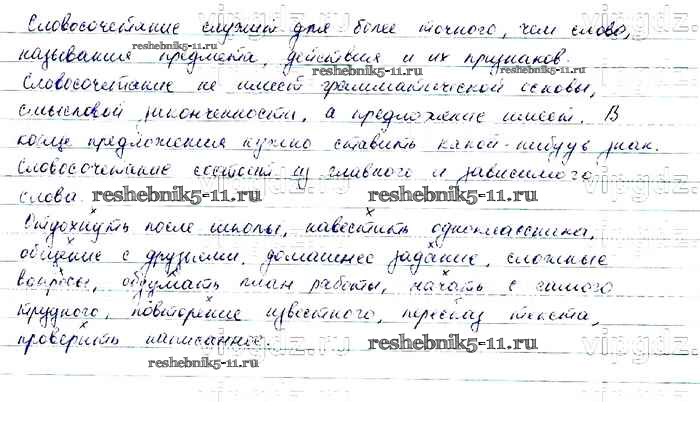 Словосочетание служит для более точного, чем слово,
называния предмета, действия и их признаков.
Словосочетание не имеет грамматической основы,
смысловой законченности, а предложение имеет. В
конце предложения нужно ставить какой-нибудь знак.
Словосочетание состоит из главного и зависимого
слова.
Отдохнуть после школы, навестить одноклассника,
общение с друзьями, домашнее задание, сложные
вопросы, обдумать план работы, начать с самого
трудного, повторение известного, пересказ текста,
проверить написанное.
reshebnik5-11.ru
reshebnik5-11.ru
reshebnik5-11.ru
reshebnik5-11.ru
reshebnik5-11.ru
reshebnik5-11.ru
reshebnik5-11.ru
vipgdz.ru
vipgdz.ru
vipgdz.ru
vipgdz.ru